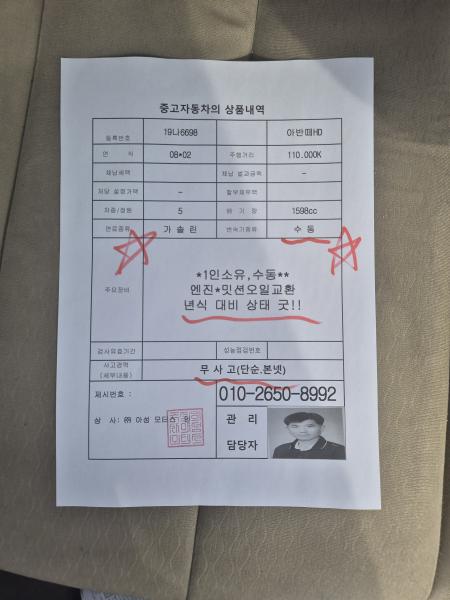 중고자동차의 상품내역
등록번호 19나6698 아반떼HD
연 식 08*02 주행거리 110.000K
체납세액 체납 벌과금액 -
저당 설정가액 - 할부채무액
차종/정원 5 배 기 량 1598cc
연료종류 가 솔 린 변속기종류 수 동
주요장비
*1인소유,수동**
엔진*밋션오일교환
년식 대비 상태 굿!!
검사유효기간 성능점검번호
사고경력
(세부내용)
무 사 고(단순.본넷)
제시번호 : 010-2650-8992
상 사: ㈜ 아성 모터스
관 리
담당자